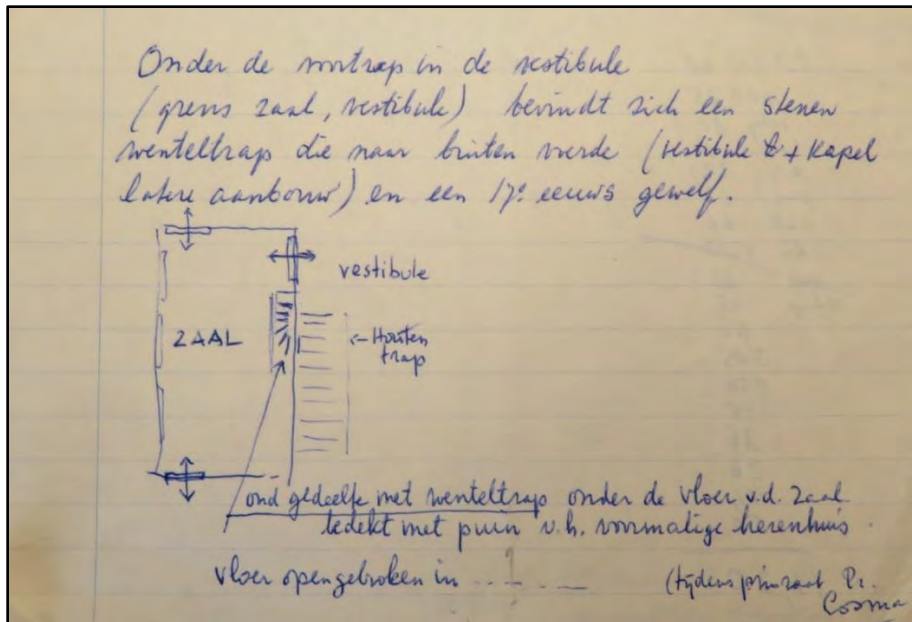 Onder de voortrap in de vestibule
(grens zaal, vestibule) bevindt zich een stenen
wenteltrap die naar buiten voerde (vestibule & + Kapel
latere aanbouw) en een 17e eeuws gewelf.
vestibule
ZAAL
<- Houten
trap
oud gedeelte met wenteltrap onder de vloer v.d. zaal
bedekt met puin v.h. voormalige herenhuis.
vloer opengebroken in ....._ (tijdens prioraat Pr.
Cosma